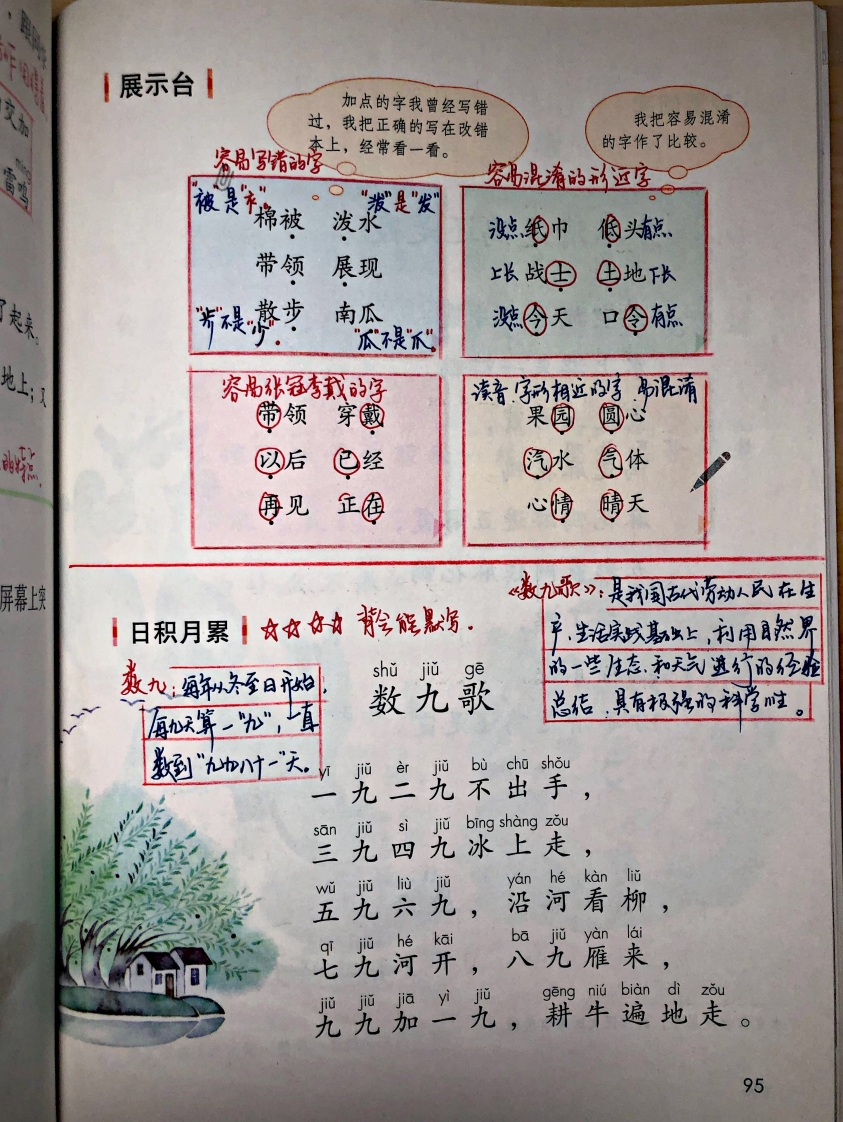 交加
míng
雷鸣
了起来。
地上；又
屏幕上突
展示台
加点的字我曾经写错
过，我把正确的写在改错
本上，经常看一看。
我把容易混淆
的字作了比较。
容易写错的字
"被"是"衤"。 "泼"是"发"
棉被 泼水
带领 展现
散步 南瓜
"步"不是"少"。 "瓜"不是"爪"。
容易混淆的形近字
没点纸巾 低头有点
上长战士 土地下长
没点今天 口令有点
容易张冠李戴的字
带领 穿戴
以后 已经
再见 正在
读音、字形相近的字，易混淆
果园 圆心
汽水 气体
心情 晴天
日积月累
☆☆☆☆ 背会能默写。
《数九歌》：是我国古代劳动人民在生
产、生活实践基础上，利用自然界
的一些生态和天气进行的经验
总结，具有极强的科学性。
数九：每年从冬至日开始，
每九天算一"九"，一直
数到"九九八十一"天。
shǔ jiǔ gē
数九歌
yī jiǔ èr jiǔ bù chū shǒu
一九二九不出手，
sān jiǔ sì jiǔ bīng shàng zǒu
三九四九冰上走，
wǔ jiǔ liù jiǔ yán hé kàn liǔ
五九六九，沿河看柳，
qī jiǔ hé kāi bā jiǔ yàn lái
七九河开，八九雁来，
jiǔ jiǔ jiā yì jiǔ gēng niú biàn dì zǒu
九九加一九，耕牛遍地走。
95